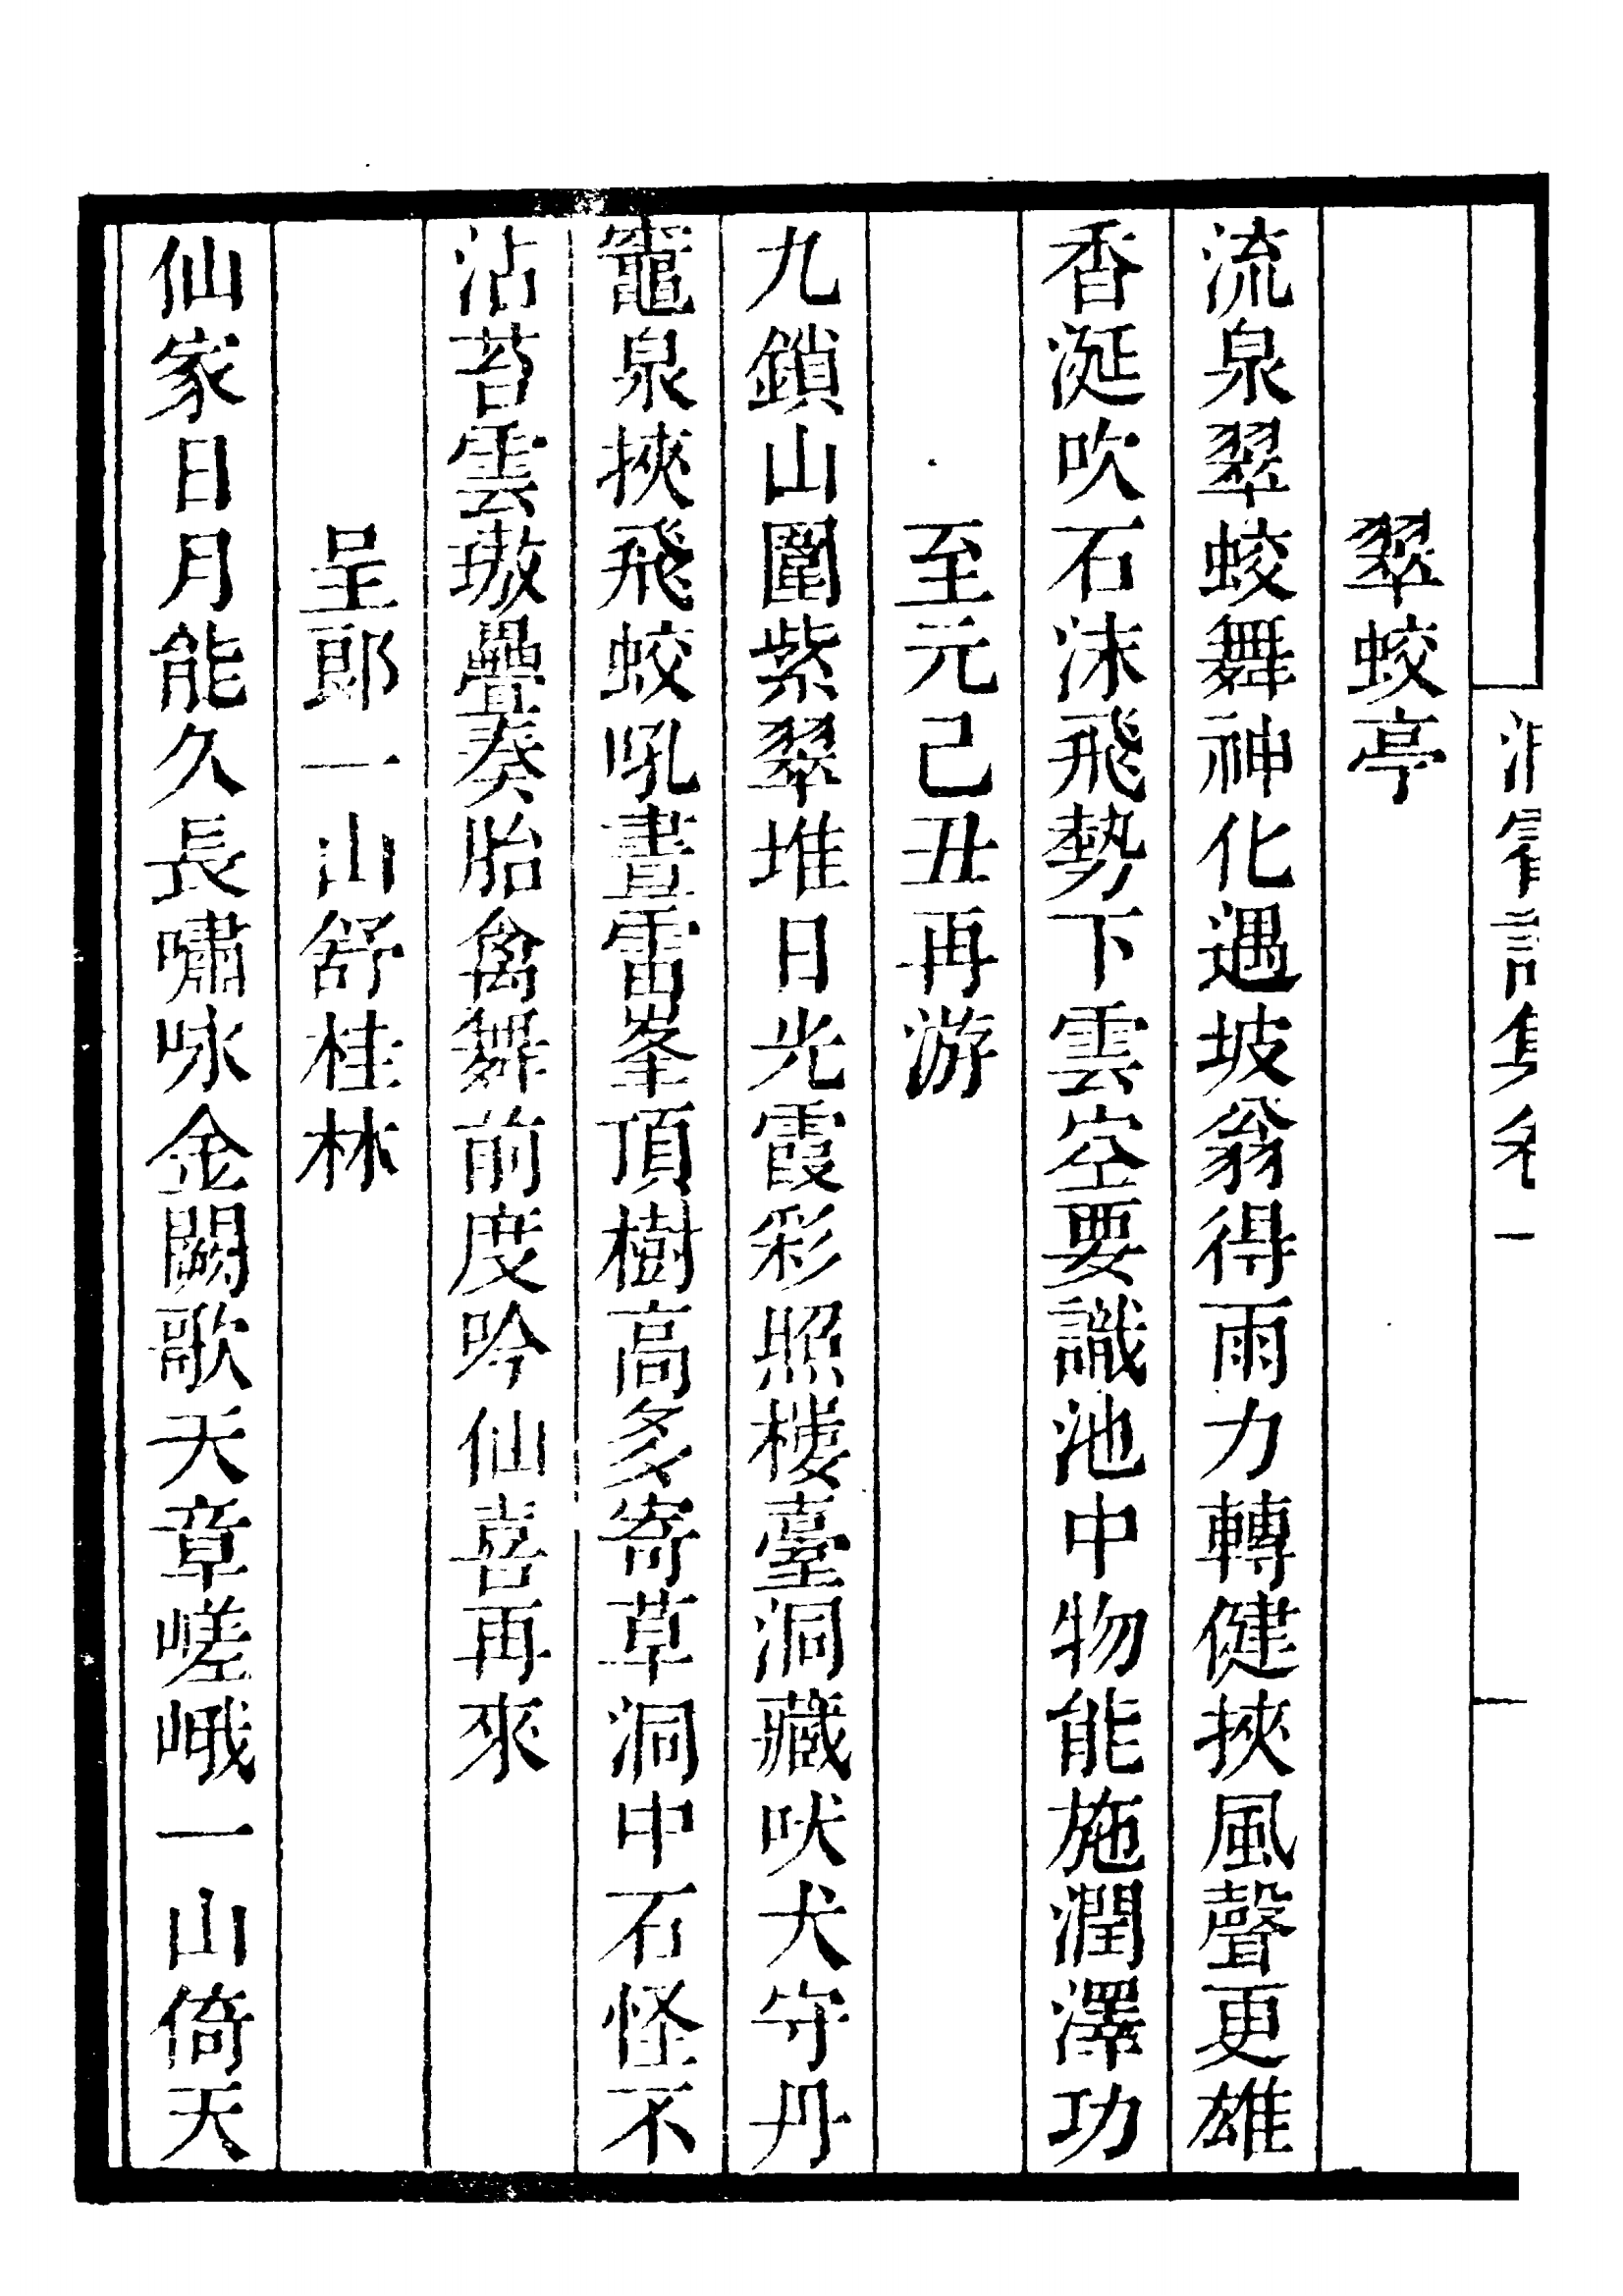 洞霄詩集卷一
翠蛟亭
流泉翠蛟舞神化遇坡翁得雨力轉健挾風聲更雄
香涎吹石沫飛勢下雲空要識池中物能施潤澤功
至元己丑再游
九鎖山圍紫翠堆日光霞彩照樓臺洞藏吠犬守丹
竈泉挾飛蛟吼晝雷峯頂樹高多寄草洞中石怪不
沾苔雲璈疊奏胎禽舞前度吟仙喜再來
呈郎一山舒桂林
仙家日月能久長嘯咏金闕歌天章嵯峨一山倚天